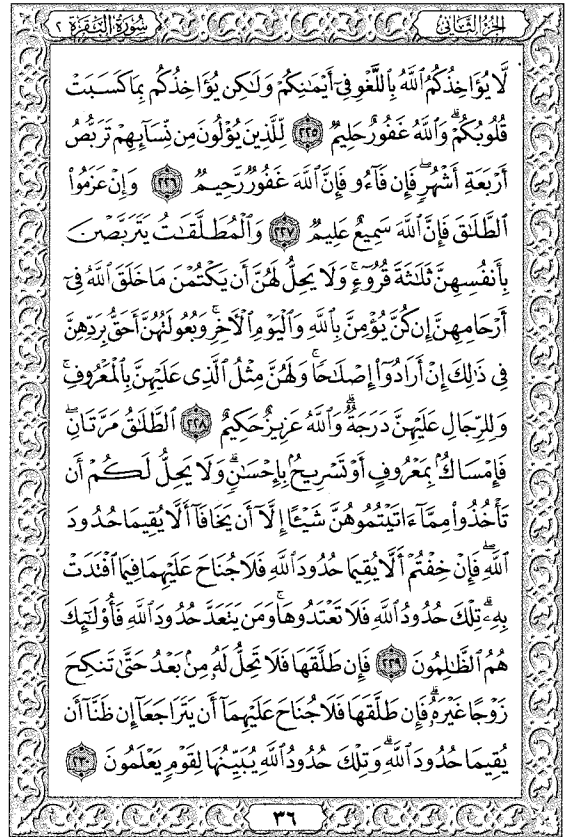 الجزء الثاني
سورة البقرة ٢
لَّا يُؤَاخِذُكُمُ ٱللَّهُ بِٱللَّغْوِ فِىٓ أَيْمَٰنِكُمْ وَلَٰكِن يُؤَاخِذُكُم بِمَا كَسَبَتْ
قُلُوبُكُمْ ۗ وَٱللَّهُ غَفُورٌ حَلِيمٌ ٢٢٥ لِّلَّذِينَ يُؤْلُونَ مِن نِّسَآئِهِمْ تَرَبُّصُ
أَرْبَعَةِ أَشْهُرٍ ۖ فَإِن فَآءُو فَإِنَّ ٱللَّهَ غَفُورٌ رَّحِيمٌ ٢٢٦ وَإِنْ عَزَمُوا۟
ٱلطَّلَٰقَ فَإِنَّ ٱللَّهَ سَمِيعٌ عَلِيمٌ ٢٢٧ وَٱلْمُطَلَّقَٰتُ يَتَرَبَّصْنَ
بِأَنفُسِهِنَّ ثَلَٰثَةَ قُرُوٓءٍ ۚ وَلَا يَحِلُّ لَهُنَّ أَن يَكْتُمْنَ مَا خَلَقَ ٱللَّهُ فِىٓ
أَرْحَامِهِنَّ إِن كُنَّ يُؤْمِنَّ بِٱللَّهِ وَٱلْيَوْمِ ٱلْءَاخِرِ ۚ وَبُعُولَتُهُنَّ أَحَقُّ بِرَدِّهِنَّ
فِى ذَٰلِكَ إِنْ أَرَادُوٓا۟ إِصْلَٰحًا ۚ وَلَهُنَّ مِثْلُ ٱلَّذِى عَلَيْهِنَّ بِٱلْمَعْرُوفِ ۚ
وَلِلرِّجَالِ عَلَيْهِنَّ دَرَجَةٌ ۗ وَٱللَّهُ عَزِيزٌ حَكِيمٌ ٢٢٨ ٱلطَّلَٰقُ مَرَّتَانِ ۖ
فَإِمْسَاكٌۢ بِمَعْرُوفٍ أَوْ تَسْرِيحٌۢ بِإِحْسَٰنٍ ۗ وَلَا يَحِلُّ لَكُمْ أَن
تَأْخُذُوا۟ مِمَّآ ءَاتَيْتُمُوهُنَّ شَيْـًٔا إِلَّآ أَن يَخَافَآ أَلَّا يُقِيمَا حُدُودَ
ٱللَّهِ ۖ فَإِنْ خِفْتُمْ أَلَّا يُقِيمَا حُدُودَ ٱللَّهِ فَلَا جُنَاحَ عَلَيْهِمَا فِيمَا ٱفْتَدَتْ
بِهِۦ ۗ تِلْكَ حُدُودُ ٱللَّهِ فَلَا تَعْتَدُوهَا ۚ وَمَن يَتَعَدَّ حُدُودَ ٱللَّهِ فَأُو۟لَٰٓئِكَ
هُمُ ٱلظَّٰلِمُونَ ٢٢٩ فَإِن طَلَّقَهَا فَلَا تَحِلُّ لَهُۥ مِنۢ بَعْدُ حَتَّىٰ تَنكِحَ
زَوْجًا غَيْرَهُۥ ۗ فَإِن طَلَّقَهَا فَلَا جُنَاحَ عَلَيْهِمَآ أَن يَتَرَاجَعَآ إِن ظَنَّآ أَن
يُقِيمَا حُدُودَ ٱللَّهِ ۗ وَتِلْكَ حُدُودُ ٱللَّهِ يُبَيِّنُهَا لِقَوْمٍ يَعْلَمُونَ ٢٣٠
٣٦